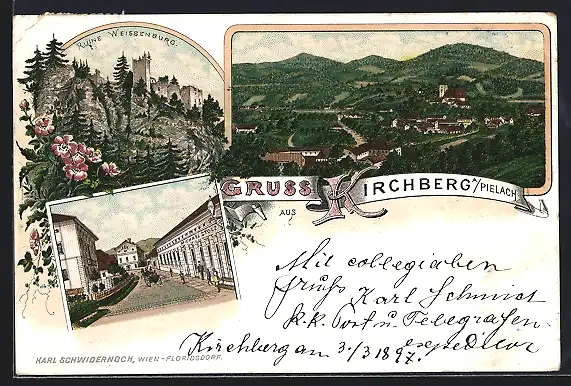 RUINE WEISSENBURG.
GRUSS AUS KIRCHBERG A/PIELACH
Mit collegialen
Gruß Karl Schmidt
k.k. Post u. Telegrafen-
expeditor
Kirchberg am 3./3 1897.
KARL SCHWIDERNOCH, WIEN-FLORIDSDORF.